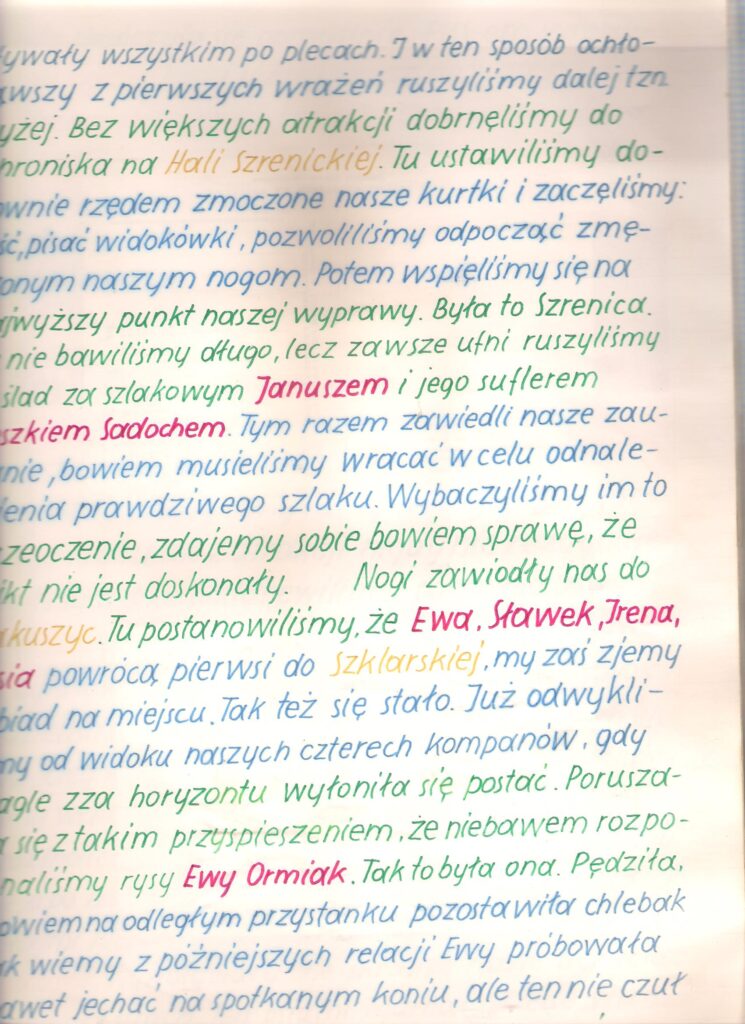 ywały wszystkim po plecach. I w ten sposób ochło-
wszy z pierwszych wrażeń ruszyliśmy dalej tzn.
yżej. Bez większych atrakcji dobrnęliśmy do
hroniska na Hali Szrenickiej. Tu ustawiliśmy do-
ownie rzędem zmoczone nasze kurtki i zaczęliśmy:
ść, pisać widokówki, pozwoliliśmy odpocząć zmę-
onym naszym nogom. Potem wspięliśmy się na
ajwyższy punkt naszej wyprawy. Była to Szrenica.
nie bawiliśmy długo, lecz zawsze ufni ruszyliśmy
ślad za szlakowym Januszem i jego suflerem
szkiem Sadochem. Tym razem zawiedli nasze zau-
nie, bowiem musieliśmy wracać w celu odnale-
ienia prawdziwego szlaku. Wybaczyliśmy im to
zeoczenie, zdajemy sobie bowiem sprawę, że
ikt nie jest doskonały. Nogi zawiodły nas do
akuszyc. Tu postanowiliśmy, że Ewa, Sławek, Irena,
sia powrócą pierwsi do Szklarskiej, my zaś zjemy
biad na miejscu. Tak też się stało. Już odwykli-
my od widoku naszych czterech kompanów, gdy
agle zza horyzontu wyłoniła się postać. Porusza-
a się z takim przyspieszeniem, że niebawem rozpo-
naliśmy rysy Ewy Ormiak. Tak to była ona. Pędziła,
owiem na odległym przystanku pozostawiła chlebak
ak wiemy z późniejszych relacji Ewy próbowała
awet jechać na spotkanym koniu, ale ten nie czuł